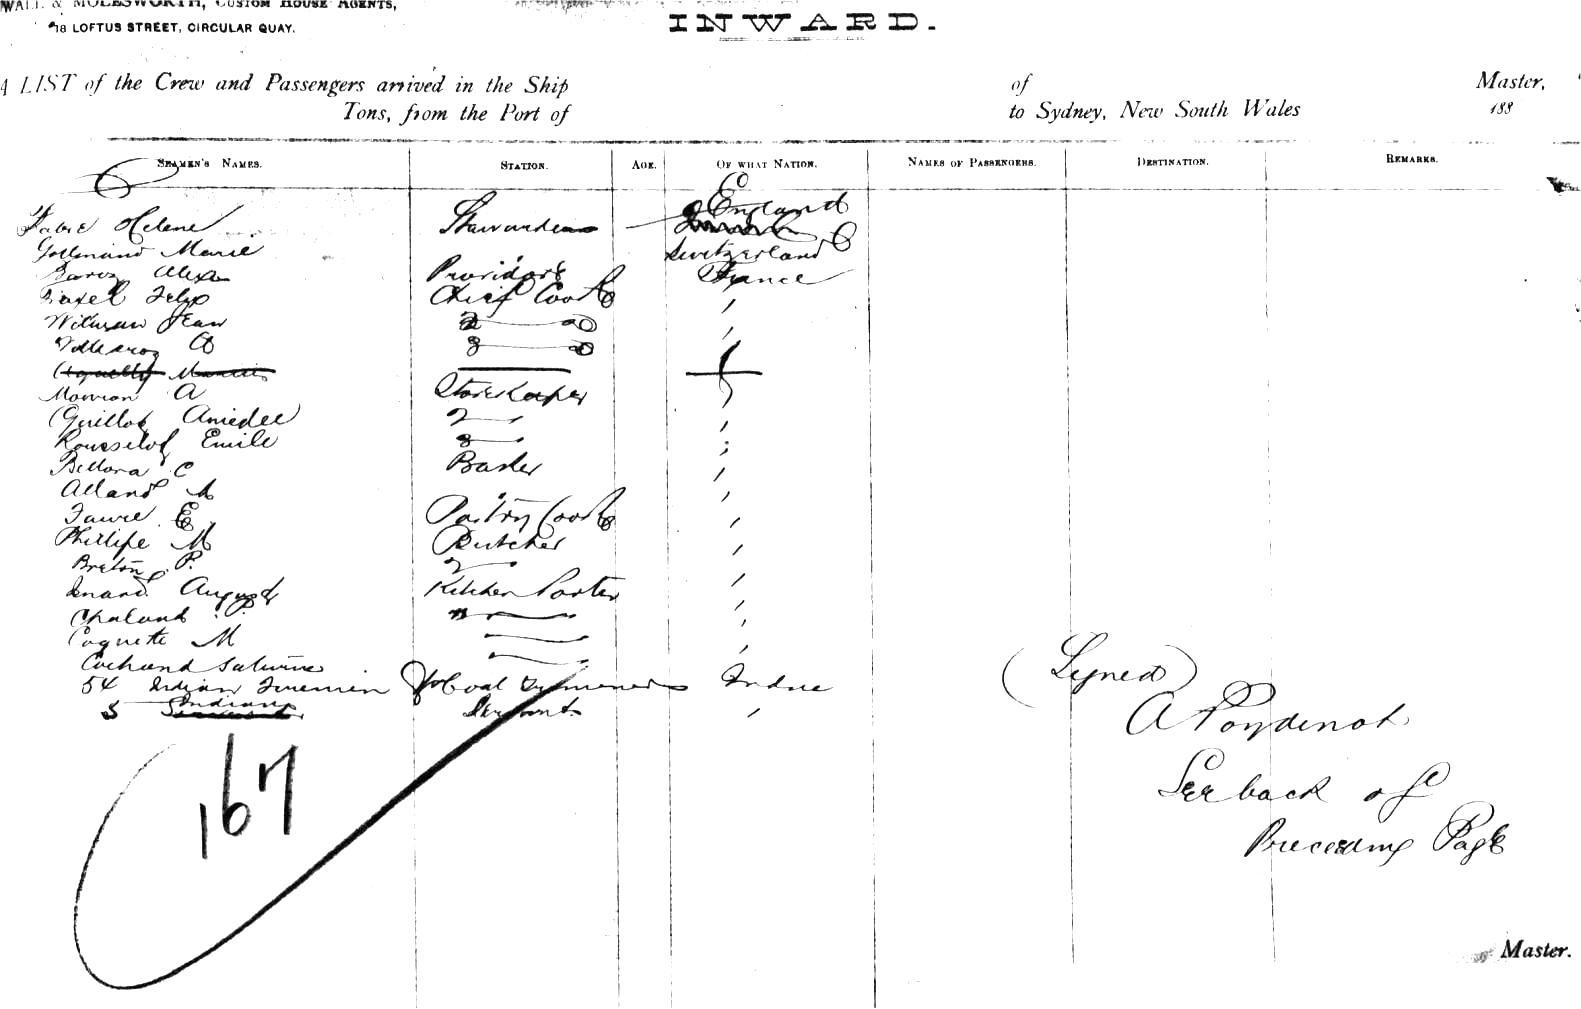 WALL & MOLESWORTH, CUSTOM HOUSE AGENTS,
18 LOFTUS STREET, CIRCULAR QUAY.
INWARD.
A LIST of the Crew and Passengers arrived in the Ship of Master,
Tons, from the Port of to Sydney, New South Wales 188
SEAMEN'S NAMES. STATION. AGE. OF WHAT NATION. NAMES OF PASSENGERS. DESTINATION. REMARKS.
England
Fabre Helene Stewardess
Marie Switzerland
Alex France
Felix Chief Cook
Jean 2
3
Mouron A Storekeeper
Guillot Amedee 2
Rousselot Emile 3
Bellora C Baker
Alland M
Faure E. Pastry Cook
Phillipe M Butcher
Breton P. 2
August Kitchen Porter
Chaland P.
Coquette M
Cochand
54 Indian Firemen & Coal Trimmers Indie
Indians Servants
167
(Signed)
A Poydenot
See back of
Preceeding Page
Master.